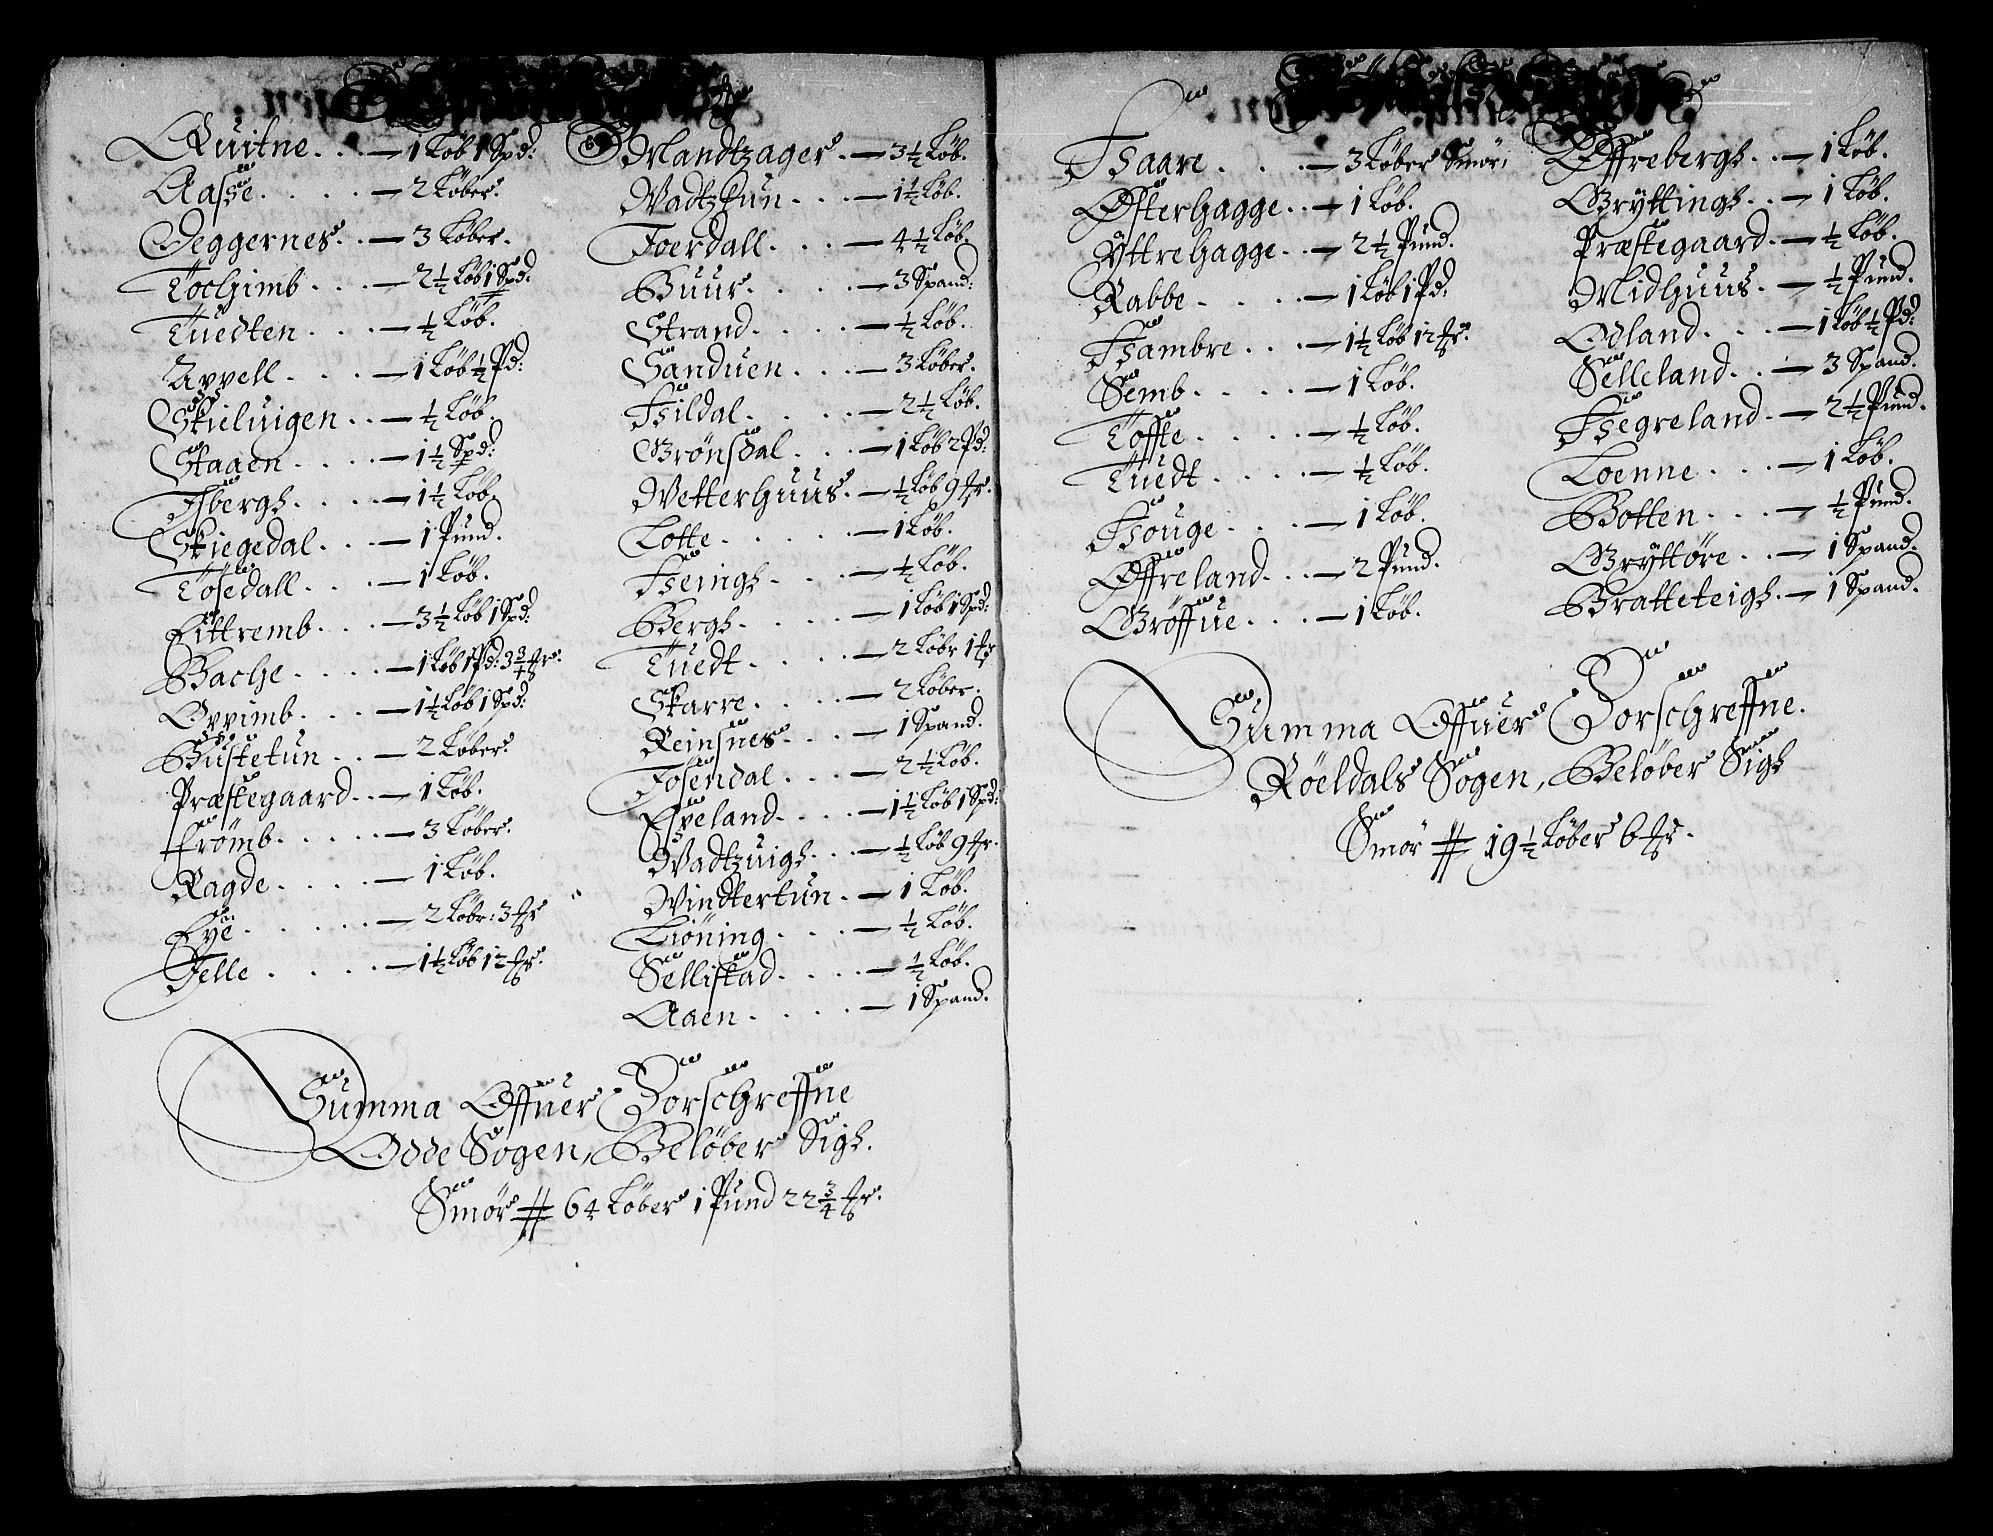 Quitne. . . — 1 Løb 1 Spd:
Aasse. . . . . — 2 Løber.
Deggernes. . — 3 Løber.
Tochimb . . . — 2½ Løb 1 Spd.
Tuedten . . . — ½ Løb.
Appell . . . . — 1 Løb ½ Pd:
Skieluigen . . — ½ Løb.
Staaen . . . . — 1½ Spd:
Isbergh . . . . — 1½ Løb.
Skiegedal . . . — 1 Pund.
Tosedall . . . — 1 Løb.
Eittremb . . . — 3½ Løb 1 Spd:
Bache . . . . . — 1 Løb 1 Pd: 3¾ ℔r.
Oppimb . . . — 1½ Løb 1 Spd:
Bustetun . . — 2 Løber.
Præstegaard . . — 1 Løb.
Frömb . . . . . — 3 Løber.
Ragde . . . . . — 1 Løb.
Eye . . . . . . — 2 Løbr: 3 ℔r
Jelle . . . . . — 1½ Løb 12 ℔r.
Mandtzager . — 3½ Løb.
Vadtztun . . . — 1½ Løb.
Joerdall . . . — 4½ Løb.
Buur . . . . . — 3 Spand:
Strand . . . . — ½ Løb.
Sanduen . . . — 3 Løber.
Hildal . . . . . — 2½ Løb.
Grönsdal . . . — 1 Løb 2 Pd:
Wetterhuus . — ½ Løb 9 ℔r.
Lotte . . . . . — 1 Løb.
Henigh . . . . — ½ Løb.
Bergh . . . . . — 1 Løb 1 Spd:
Tuedt . . . . . — 2 Løbr 1 ℔r
Skarre . . . . — 2 Løber.
Reinsnes . . . — 1 Spand.
Josendal . . . — 2½ Løb.
Espeland . . . — 1½ Løb 1 Spd:
Vadtzuigh . . . — ½ Løb 9 ℔r.
Windtertun . — 1 Løb.
Liöning . . . — ½ Løb.
Sellistad . . . . — ½ Løb.
Aaen . . . . . — 1 Spand.
Summa Offuer Forschreffne
Odde Sogen, Beløber Sigh.
Smør # 64 Løber 1 Pund 22¾ ℔r.
Haare . . . . — 3 Løber Smør:
Østerhagge . . — 1 Løb.
Yttrehagge . . — 2½ Pund.
Rabbe . . . . — 1 Løb 1 Pd:
Hambre . . . — 1½ Løb 12 ℔r.
Semb . . . . . — 1 Løb.
Toffte . . . . . — ½ Løb.
Tuedt . . . . . — ½ Løb.
Houge . . . . — 1 Løb.
Offreland . . . — 2 Pund.
Gröffue . . . — 1 Løb.
Offrebergh . . — 1 Løb.
Gryttingh . . — 1 Løb.
Præstegaard . — ½ Løb.
Midhuus . . — ½ Pund.
Odland . . . — 1 Løb ½ Pd:
Selleland . . — 3 Spand.
Hegreland . — 2½ Pund.
Loenne . . . — 1 Løb.
Botten . . . — ½ Pund.
Gryttöre . . — 1 Spand.
Bratteteigh . — 1 Spand.
Summa Offuer Forschreffne.
Röeldals Sogen, Beløber Sigh
Smör # 19½ Løber 6 ℔r.